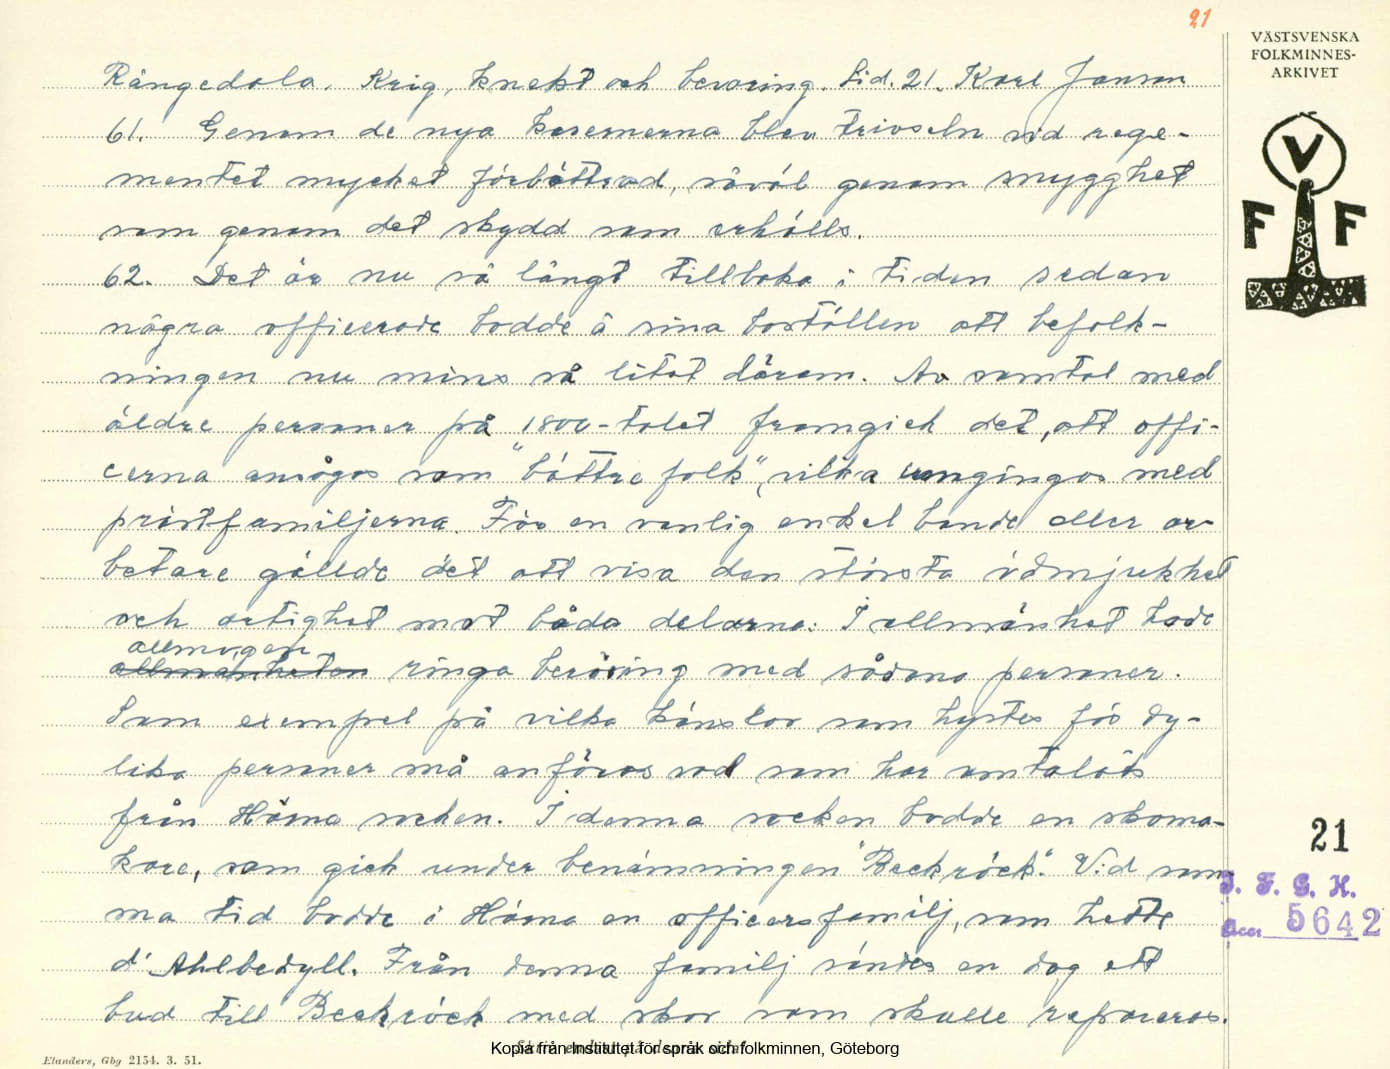 21
VÄSTSVENSKA
FOLKMINNES-
ARKIVET
Rångedala. Krig, knekt och bevaring. Sid. 21. Karl Janson
61. Genom de nya kasernerna blev trivseln vid rege-
mentet mycket förbättrad, såväl genom snygghet
som genom det skydd som erhölls.
V
F F
62. Det är nu så långt tillbaka i tiden sedan
några officerare bodde å sina boställen att befolk-
ningen nu mins så litet därom. Av samtal med
äldre personer på 1800-talet framgick det, att offi-
cerna ansågos som "bättre folk", vilka umgingos med
prästfamiljerna. För en vanlig enkel bonde eller ar-
betare gällde det att visa den största ödmjukhet
och artighet mot båda delarna. I allmänhet hade
allmogen
allmänheten ringa beröring med sådana personer.
Som exempel på vilka känslor som hystes för dy-
lika personer må anföras vad som har omtalats
från Härna socken. I denna socken bodde en skoma-
kare, som gick under benämningen "Beckröck". Vid sam-
ma tid bodde i Härna en officersfamilj, som hette
d'Ahlbedyll. Från denna familj sändes en dag ett
bud till Beckröck med skor som skulle repareras.
21
I. F. G. H.
Acc. 5642
Elanders, Gbg 2154. 3. 51.
Kopia från Institutet för språk och folkminnen, Göteborg